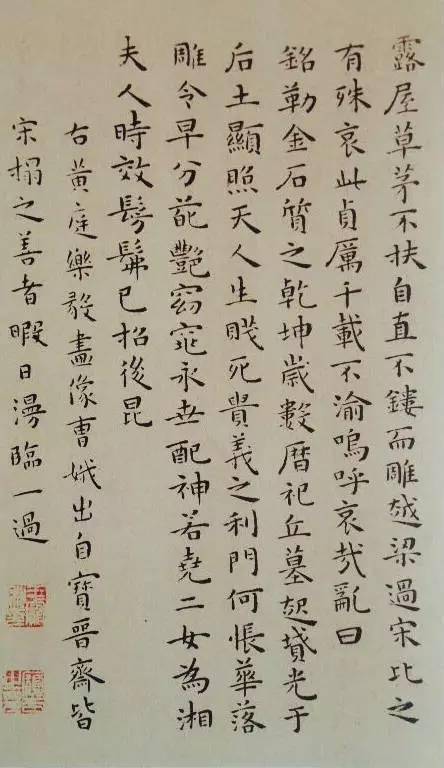 露屋草茅不扶自直不鏤而雕越梁過宋比之
有殊哀此貞厲千載不渝嗚呼哀哉亂曰
銘勒金石質之乾坤歲數曆祀丘墓起墳光于
后土顯照天人生賤死貴義之利門何悵華落
雕令早分葩豔窈窕永世配神若堯二女為湘
夫人時效髣髴已招後昆
右黃庭樂毅畫像曹娥出自寶晉齋皆
宋搨之善者暇日漫臨一過